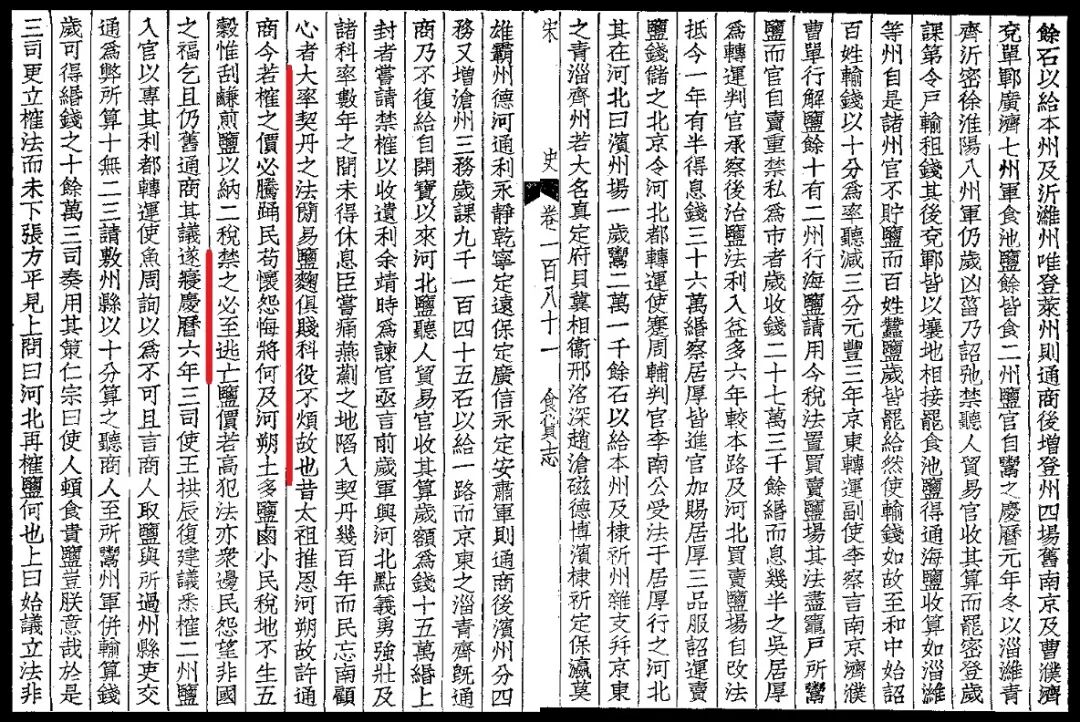 餘石以給本州及沂濰州唯登萊州則通商後增登州四場舊南京及曹濮濟
兗單鄆廣濟七州軍食池鹽餘皆食二州鹽官自鬻之慶曆元年冬以淄濰青
齊沂密徐淮陽八州軍仍歲凶菑乃詔弛禁聽人貿易官收其算而罷密登歲
課第令戶輸租錢其後兗鄆皆以壤地相接罷食池鹽得通海鹽收算如淄濰
等州自是諸州官不貯鹽而百姓蠶鹽歲皆罷給然使輸錢如故至和中始詔
百姓輸錢以十分為率聽減三分元豐三年京東轉運副使李察言南京濟濮
曹單行解鹽餘十有二州行海鹽請用今稅法置買賣鹽場其法盡竈戶所鬻
鹽而官自賣重禁私為市者歲收錢二十七萬三千餘緡而息幾半之吳居厚
為轉運判官承察後治鹽法利入益多六年較本路及河北買賣鹽場自改法
抵今一年有半得息錢三十六萬緡察居厚皆進官加賜居厚三品服詔運賣
鹽錢儲之北京令河北都轉運使蹇周輔判官李南公受法于居厚行之河北
其在河北曰濱州場一歲鬻二萬一千餘石以給本州及棣祈州雜支幷京東
之青淄齊州若大名真定府貝冀相衞邢洺深趙滄磁德博濱棣祈定保瀛莫
宋 史 卷一百八十一 食貨志
雄霸州德河通利永靜乾寧定遠保定廣信永定安肅軍則通商後濱州分四
務又增滄州三務歲課九千一百四十五石以給一路而京東之淄青齊旣通
商乃不復給自開寶以來河北鹽聽人貿易官收其算歲額為錢十五萬緡上
封者嘗請禁榷以收遺利余靖時為諫官亟言前歲軍興河北點義勇強壯及
諸科率數年之間未得休息臣嘗痛燕薊之地陷入契丹幾百年而民忘南顧
心者大率契丹之法簡易鹽麴俱賤科役不煩故也昔太祖推恩河朔故許通
商今若榷之價必騰踊民苟懷怨悔將何及河朔土多鹽鹵小民稅地不生五
穀惟刮鹻煎鹽以納二稅禁之必至逃亡鹽價若高犯法亦衆邊民怨望非國
之福乞且仍舊通商其議遂寢慶曆六年三司使王拱辰復建議悉榷二州鹽
入官以專其利都轉運使魚周詢以為不可且言商人取鹽與所過州縣吏交
通為弊所算十無二三請敷州縣以十分算之聽商人至所鬻州軍併輸算錢
歲可得緡錢之十餘萬三司奏用其策仁宗曰使人頓食貴鹽豈朕意哉於是
三司更立榷法而未下張方平見上問曰河北再榷鹽何也上曰始議立法非